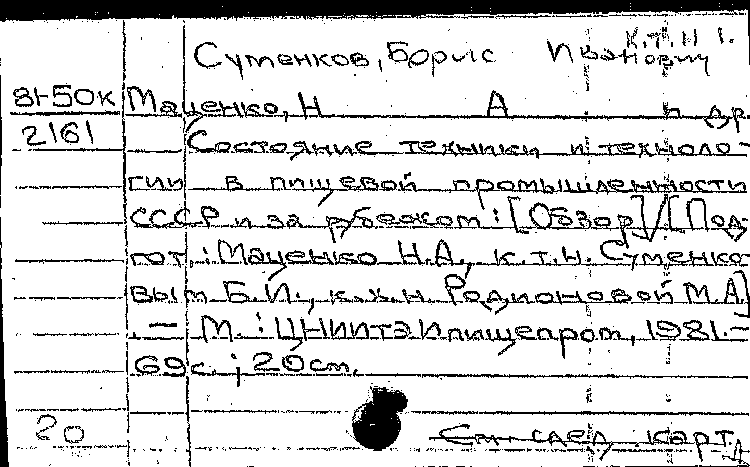 К.Т.Н 1.
Сутенков, Борис Иванович
81-50К Маценко, Н А и др.
2161 Состояние техники и техноло-
гии в пищевой промышленности
СССР и за рубежом: [Обзор]/[Под-
гот.: Маценко Н.А., к.т.н. Сутенко-
вым Б.И., к.х.н. Родионовой М.А.]
. — М.: ЦНИИТЭИпищепром, 1981.—
69с.; 20см.
20 См. след. карт.